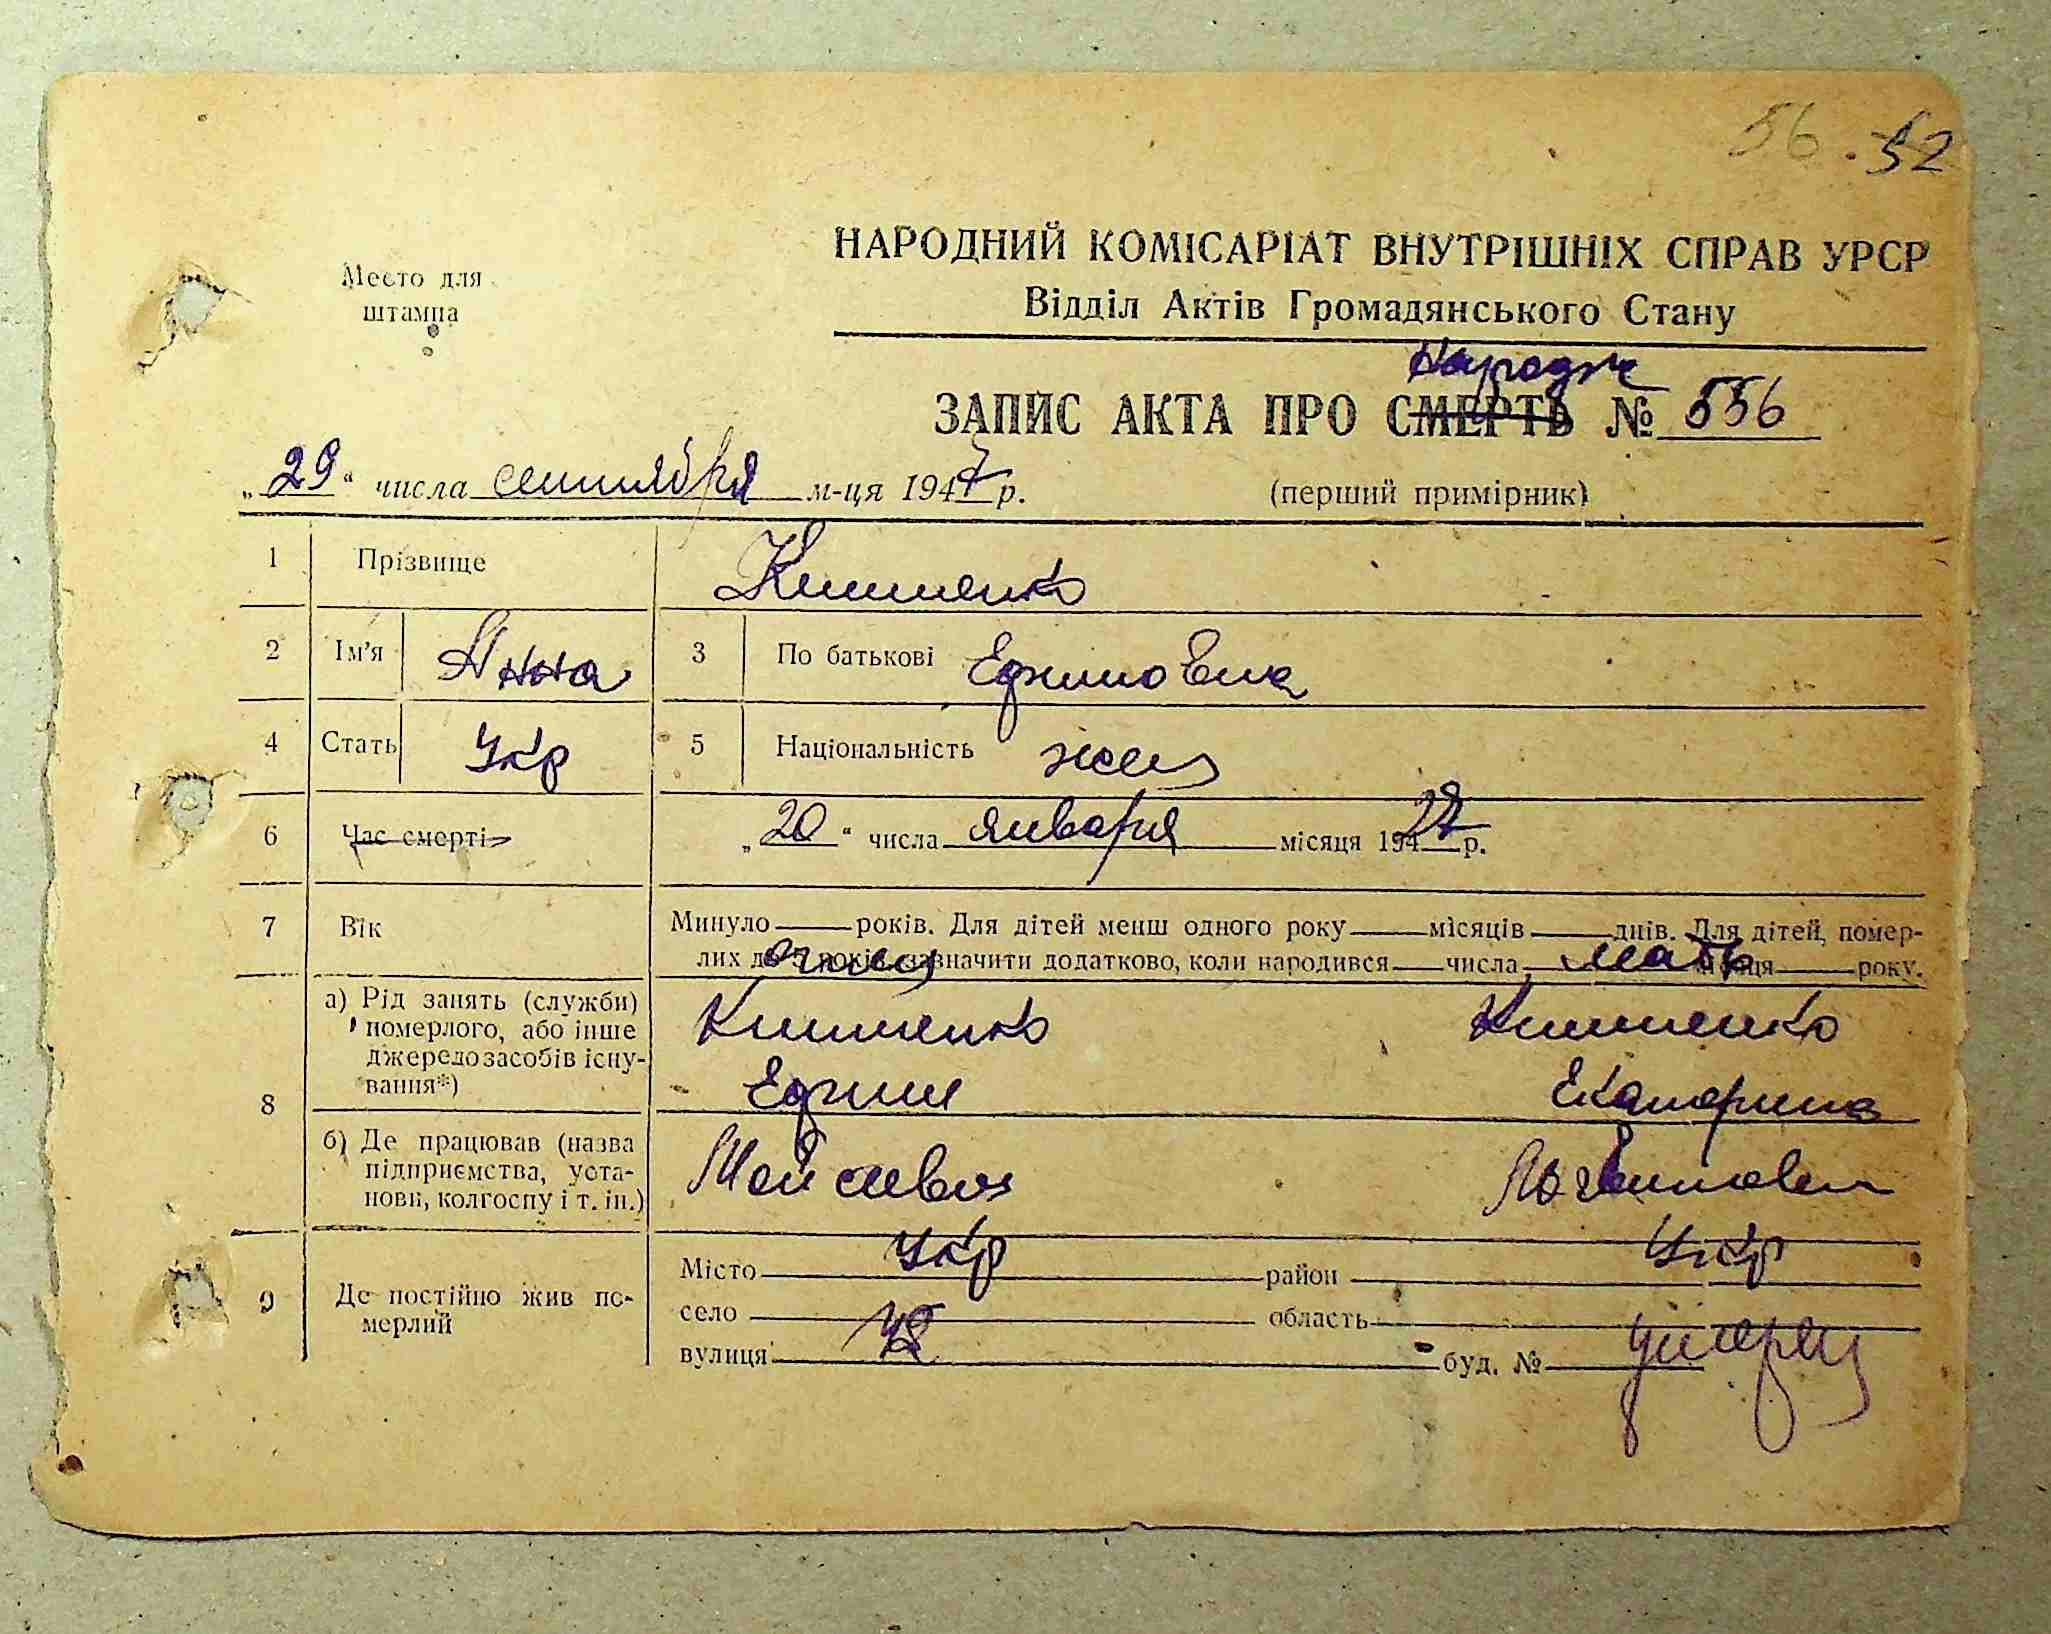 56 . 52
НАРОДНИЙ КОМІСАРІАТ ВНУТРІШНІХ СПРАВ УРСР
Место для штампа
Відділ Актів Громадянського Стану
Народж
ЗАПИС АКТА ПРО СМЕРТЬ № 556
„29“ числа сентября м-ця 1947 р. (перший примірник)
1 Прізвище
2 Ім'я Анна 3 По батькові Ефимовна
4 Стать Укр 5 Національність жен
6 Час смерті „20“ числа января місяця 194 27 р.
7 Вік Минуло року років. Для дітей менш одного року місяців днів. Для дітей, помер-
лих до 5 років, зазначити додатково, коли народився числа місяця року.
отец мать
8 а) Рід занять (служби)
померлого, або інше
джерело засобів існу-
вання*)
Ефим Екатерина
б) Де працював (назва
підприємства, уста-
нови, колгоспу і т. ін.)
9 Де постійно жив по-
мерлий
Укр Укр
Місто район
село область
вулиця буд. №
умерла